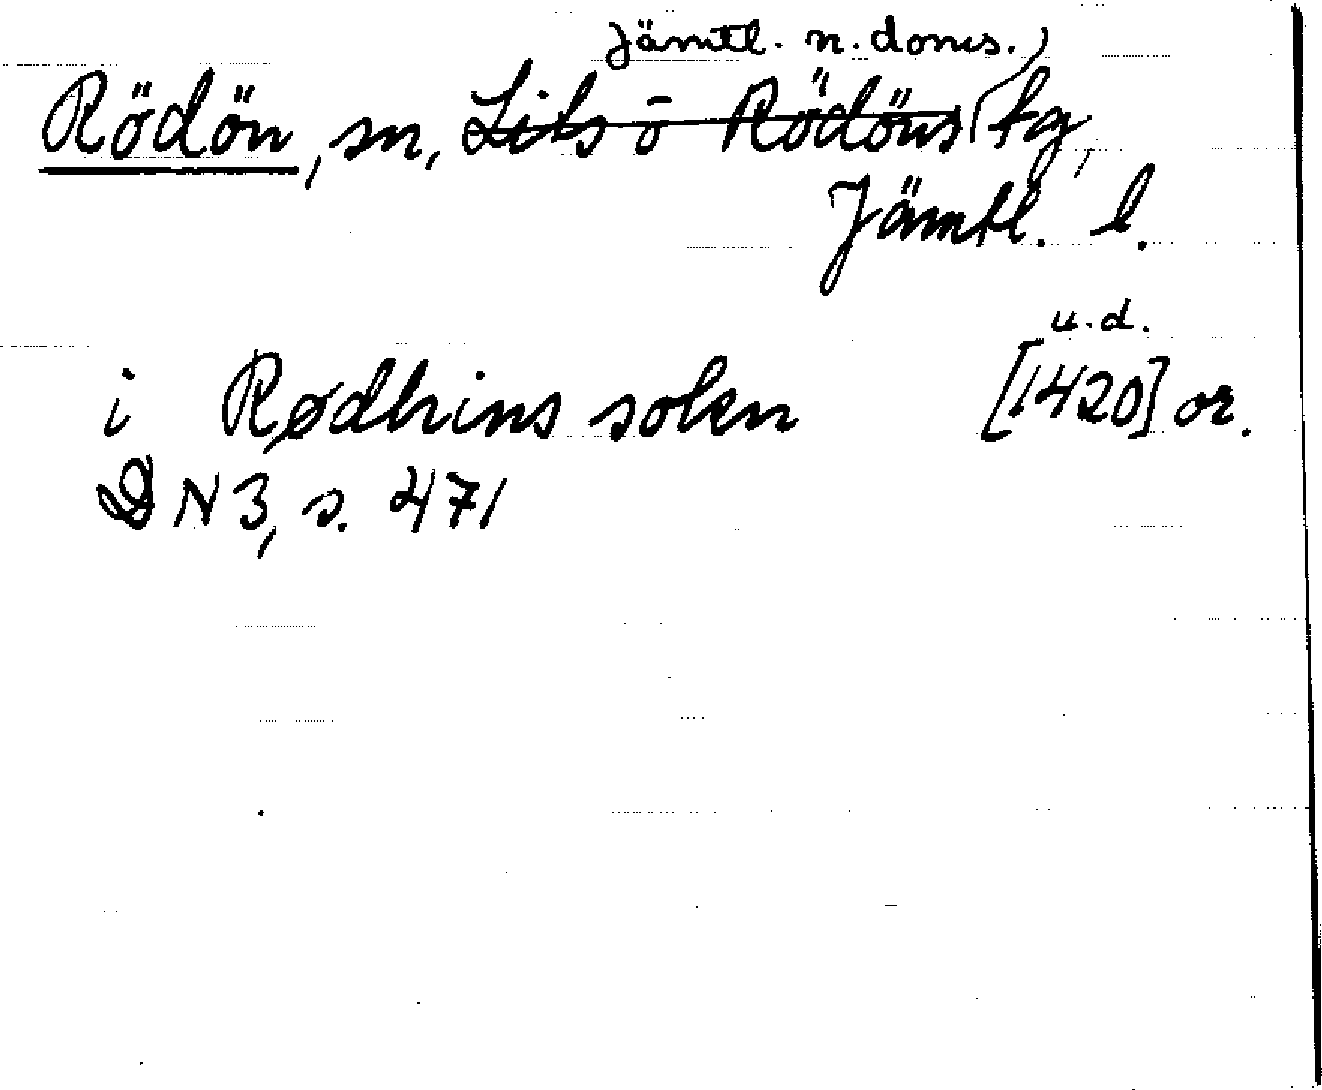 Jämtl. n. doms.
Rödön, sn, Lits o Rödöns tg,
Jämtl. l.
u.d.
i Rødhins soken [1420] or.
DN 3, s. 471